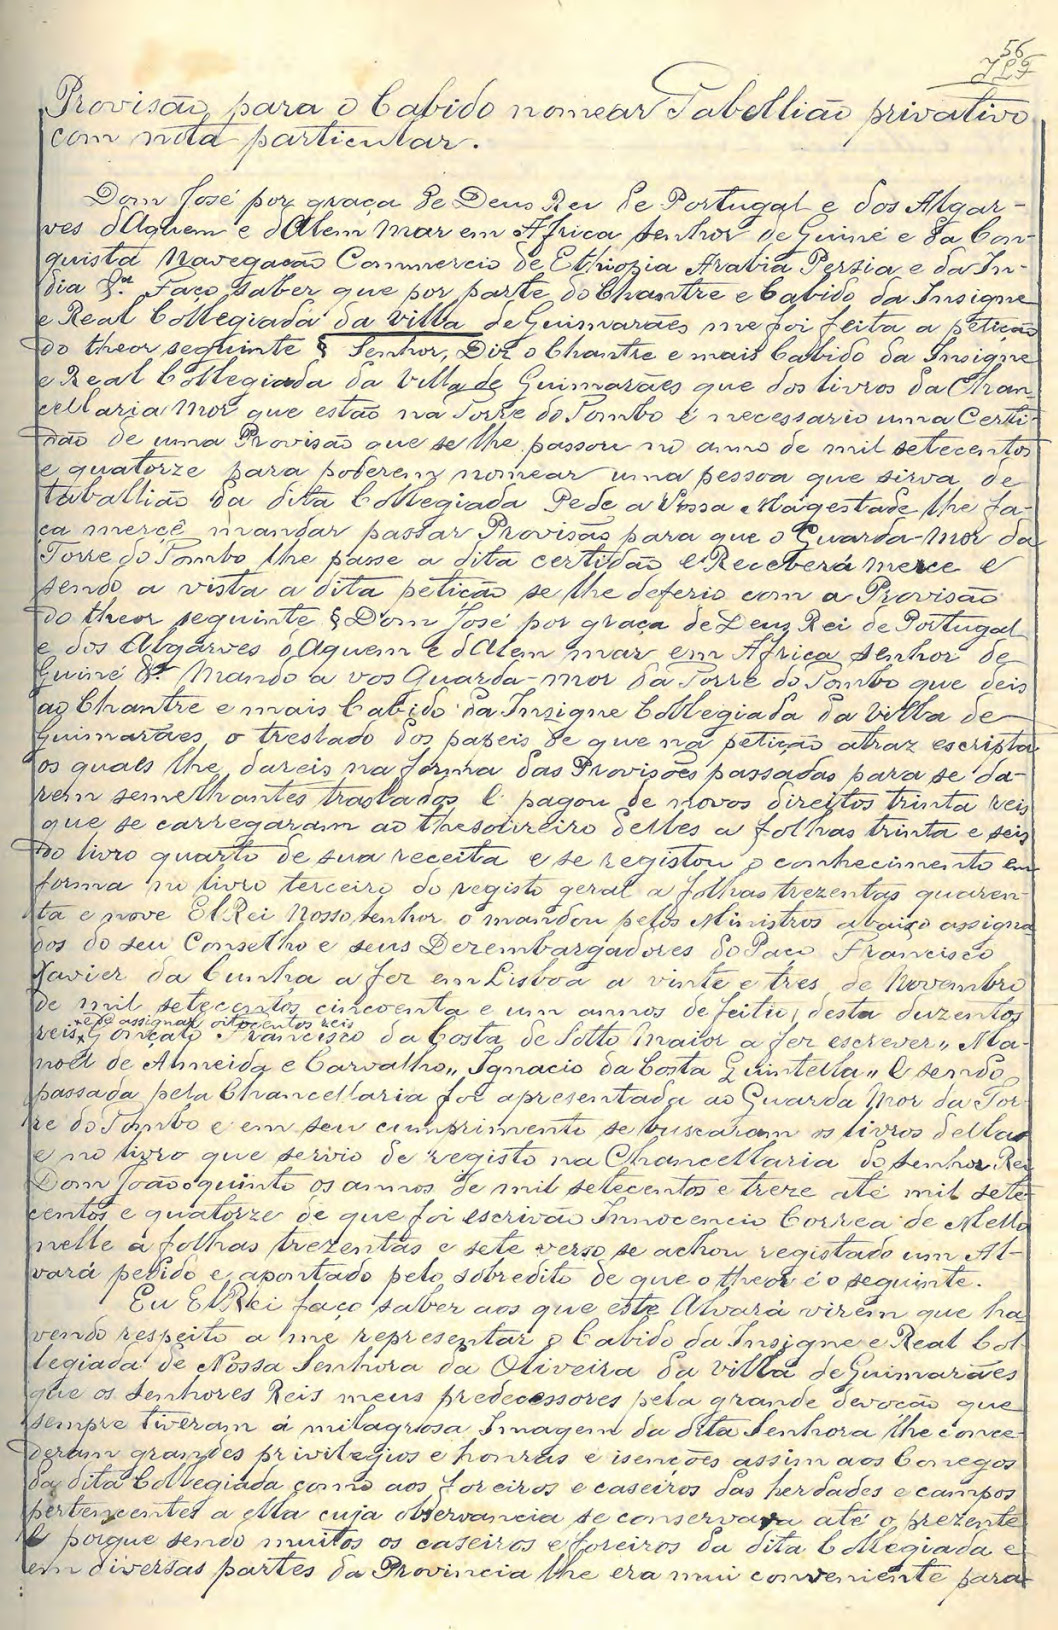 56
Provisão, para o Cabido nomear Tabellião privativo
com nota particular.
Dom José por graça de Deus Rei de Portugal e dos Algar-
ves dAquem e dAlem Mar em Africa senhor de Guiné e da Con-
quista Navegacão Commercio de Ethiopia Arabia Persia e da In-
dia &ª Faço saber que por parte do Chantre e Cabido da Insigne
e Real Collegiada da Villa de Guimarães me foi feita a petição
do theor seguinte § Senhor, Diz o Chantre e mais Cabido da Insigne
e Real Collegiada da Villa de Guimarães que dos livros da Chan
cellaria Mor que estão na Torre do Tombo é necessario uma Certi-
dão de uma Provisão que se lhe passou no anno de mil setecentos
e quatorze para poderem nomear uma pessoa que sirva de
taballião da dita Collegiada Pede a Vossa Magestade lhe fa-
ça mercê mandar passar Provisão para que o Guarda-Mor da
Torre do Tombo lhe passe a dita certidão E Receberá Merce E
sendo a vista a dita petição se lhe deferio com a Provisão
do theor seguinte § Dom José por graça de Deus Rei de Portugal
e dos Algarves dAquem e dAlem mar em Africa senhor de
Guiné &ª Mando a vos Guarda-mor da Torre do Tombo que deis
ao Chantre e mais Cabido da Insigne Collegiada da Villa de
Guimarães o treslado dos papeis de que na petição atraz escripta
os quaes lhe dareis na forma das Provisões passadas para se da-
rem semelhantes traslados E pagou de novos direitos trinta reis
que se carregaram ao thesoureiro delles a folhas trinta e seis
do livro quarto de sua receita e se registou o conhecimento em
forma no livro terceiro do registo geral a folhas trezentas quaren-
ta e nove ElRei Nosso senhor o mandou pelos Ministros abaixo assigna
dos do seu Conselho e seus Dezembargadores do Paço Francisco
Xavier da Cunha a fez em Lisboa a vinte e tres de Novembro
de mil setecentos cincoenta e um annos de feitio desta duzentos
e de assignar oitocentos reis
reis Gonçalo Francisco da Costa de Sotto Maior a fez escrever „ Ma-
noel de Almeida e Carvalho „ Ignacio da Costa Quintella „ E sendo
passada pela Chancellaria foi apresentada ao Guarda Mor da Tor-
re do Tombo e em seu cumprimento se buscaram os livros dellas
e no livro que servio de registo na Chancellaria do senhor Rei
Dom João o quinto os annos de mil setecentos e treze até mil sete
centos e quatorze de que foi escrivão Innocencio Correa de Mello
nelle á folhas trezentas e sete verso se achou registado um Al-
vará pedido e apontado pelo sobredito de que o theor é o seguinte.
Eu ElRei faço saber aos que este Alvará virem que ha-
vendo respeito a me representar o Cabido da Insigne e Real Col-
legiada de Nossa Senhora da Oliveira da Villa de Guimarães
que os senhores Reis meus predecessores pela grande devoção que
sempre tiveram á milagrosa Imagem da dita Senhora lhe conce-
deram grandes privilegios e honras e isenções assim aos Conegos
da dita Collegiada como aos foreiros e caseiros das herdades e campos
pertencentes a ella cuja observancia se conservava até o prezente
E porque sendo muitos os caseiros e foreiros da dita Collegiada e
em diversas partes da Provincia lhe era mui conveniente para